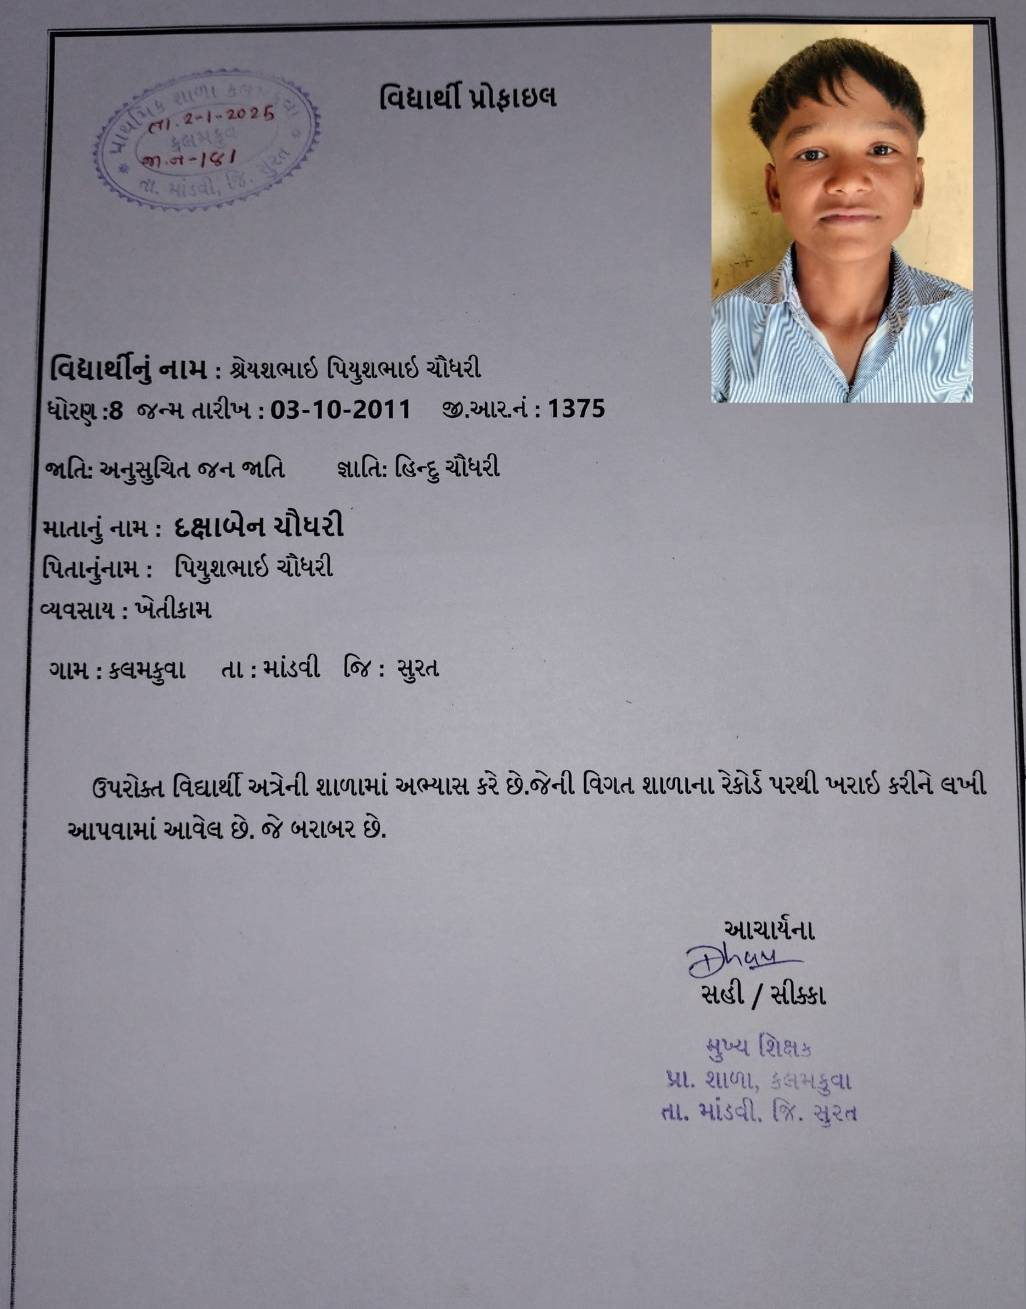 પ્રાથમિક શાળા કલમકુવા
તા. 2-1-2025
કલમકુવા
જા.ન-181
તા. માંડવી, જિ. સુરત
વિદ્યાર્થી પ્રોફાઇલ
વિદ્યાર્થીનું નામ : શ્રેયશભાઇ પિયુશભાઇ ચૌધરી
ધોરણ :8 જન્મ તારીખ : 03-10-2011 જી.આર.નં : 1375
જાતિ: અનુસુચિત જન જાતિ જ્ઞાતિ: હિન્દુ ચૌધરી
માતાનું નામ : દક્ષાબેન ચૌધરી
પિતાનુંનામ : પિયુશભાઇ ચૌધરી
વ્યવસાય : ખેતીકામ
ગામ : કલમકુવા તા : માંડવી જિ : સુરત
ઉપરોક્ત વિદ્યાર્થી અત્રેની શાળામાં અભ્યાસ કરે છે.જેની વિગત શાળાના રેકોર્ડ પરથી ખરાઇ કરીને લખી
આપવામાં આવેલ છે. જે બરાબર છે.
આચાર્યના
સહી / સીક્કા
મુખ્ય શિક્ષક
પ્રા. શાળા, કલમકુવા
તા. માંડવી. જિ. સુરત